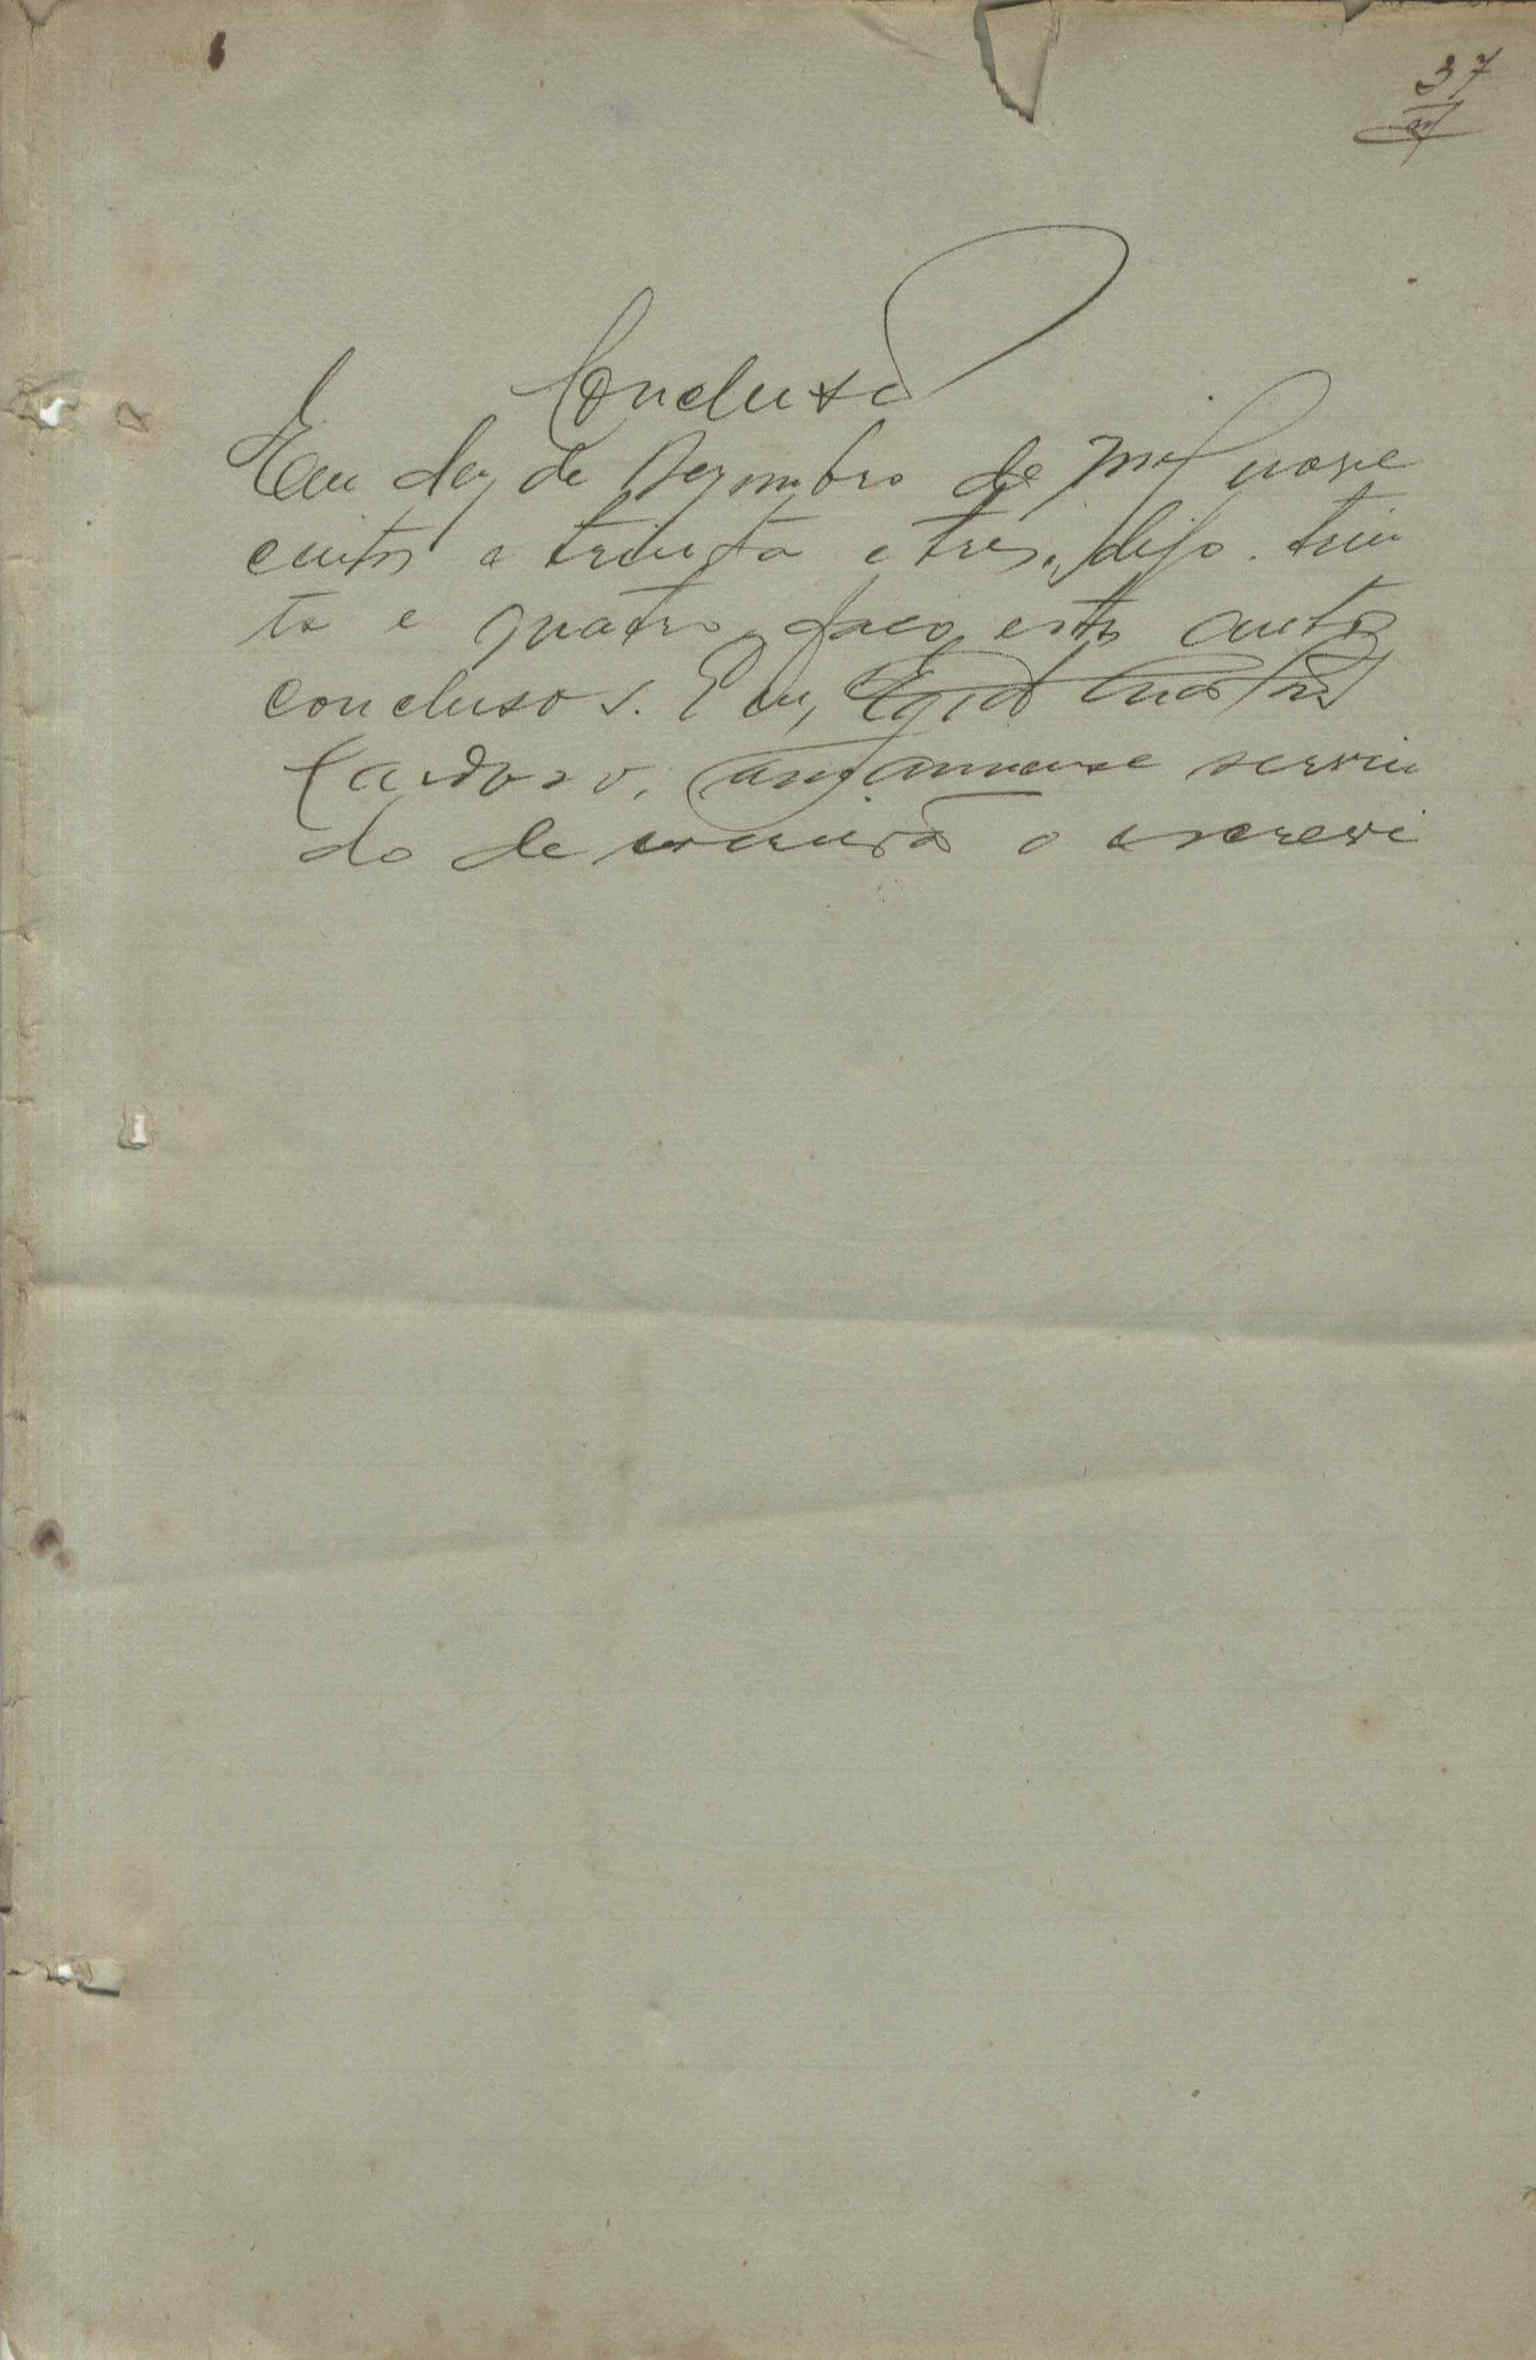 37
Conclusão
Em dez de Dezembro de mil nove
centos e trinta e tres, digo. trin
ta e quatro, faço estes autos
conclusos. Eu, Egidio
Cardoso, amanuense servin
do de escrivão o escrevi